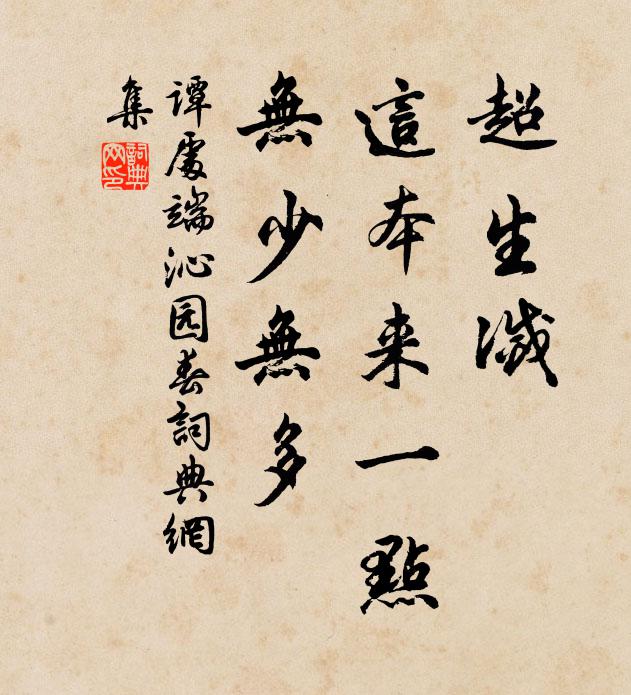 超生滅
這本来一點
無少無多
譚處端沁园春詞典網
集
詞典
网印